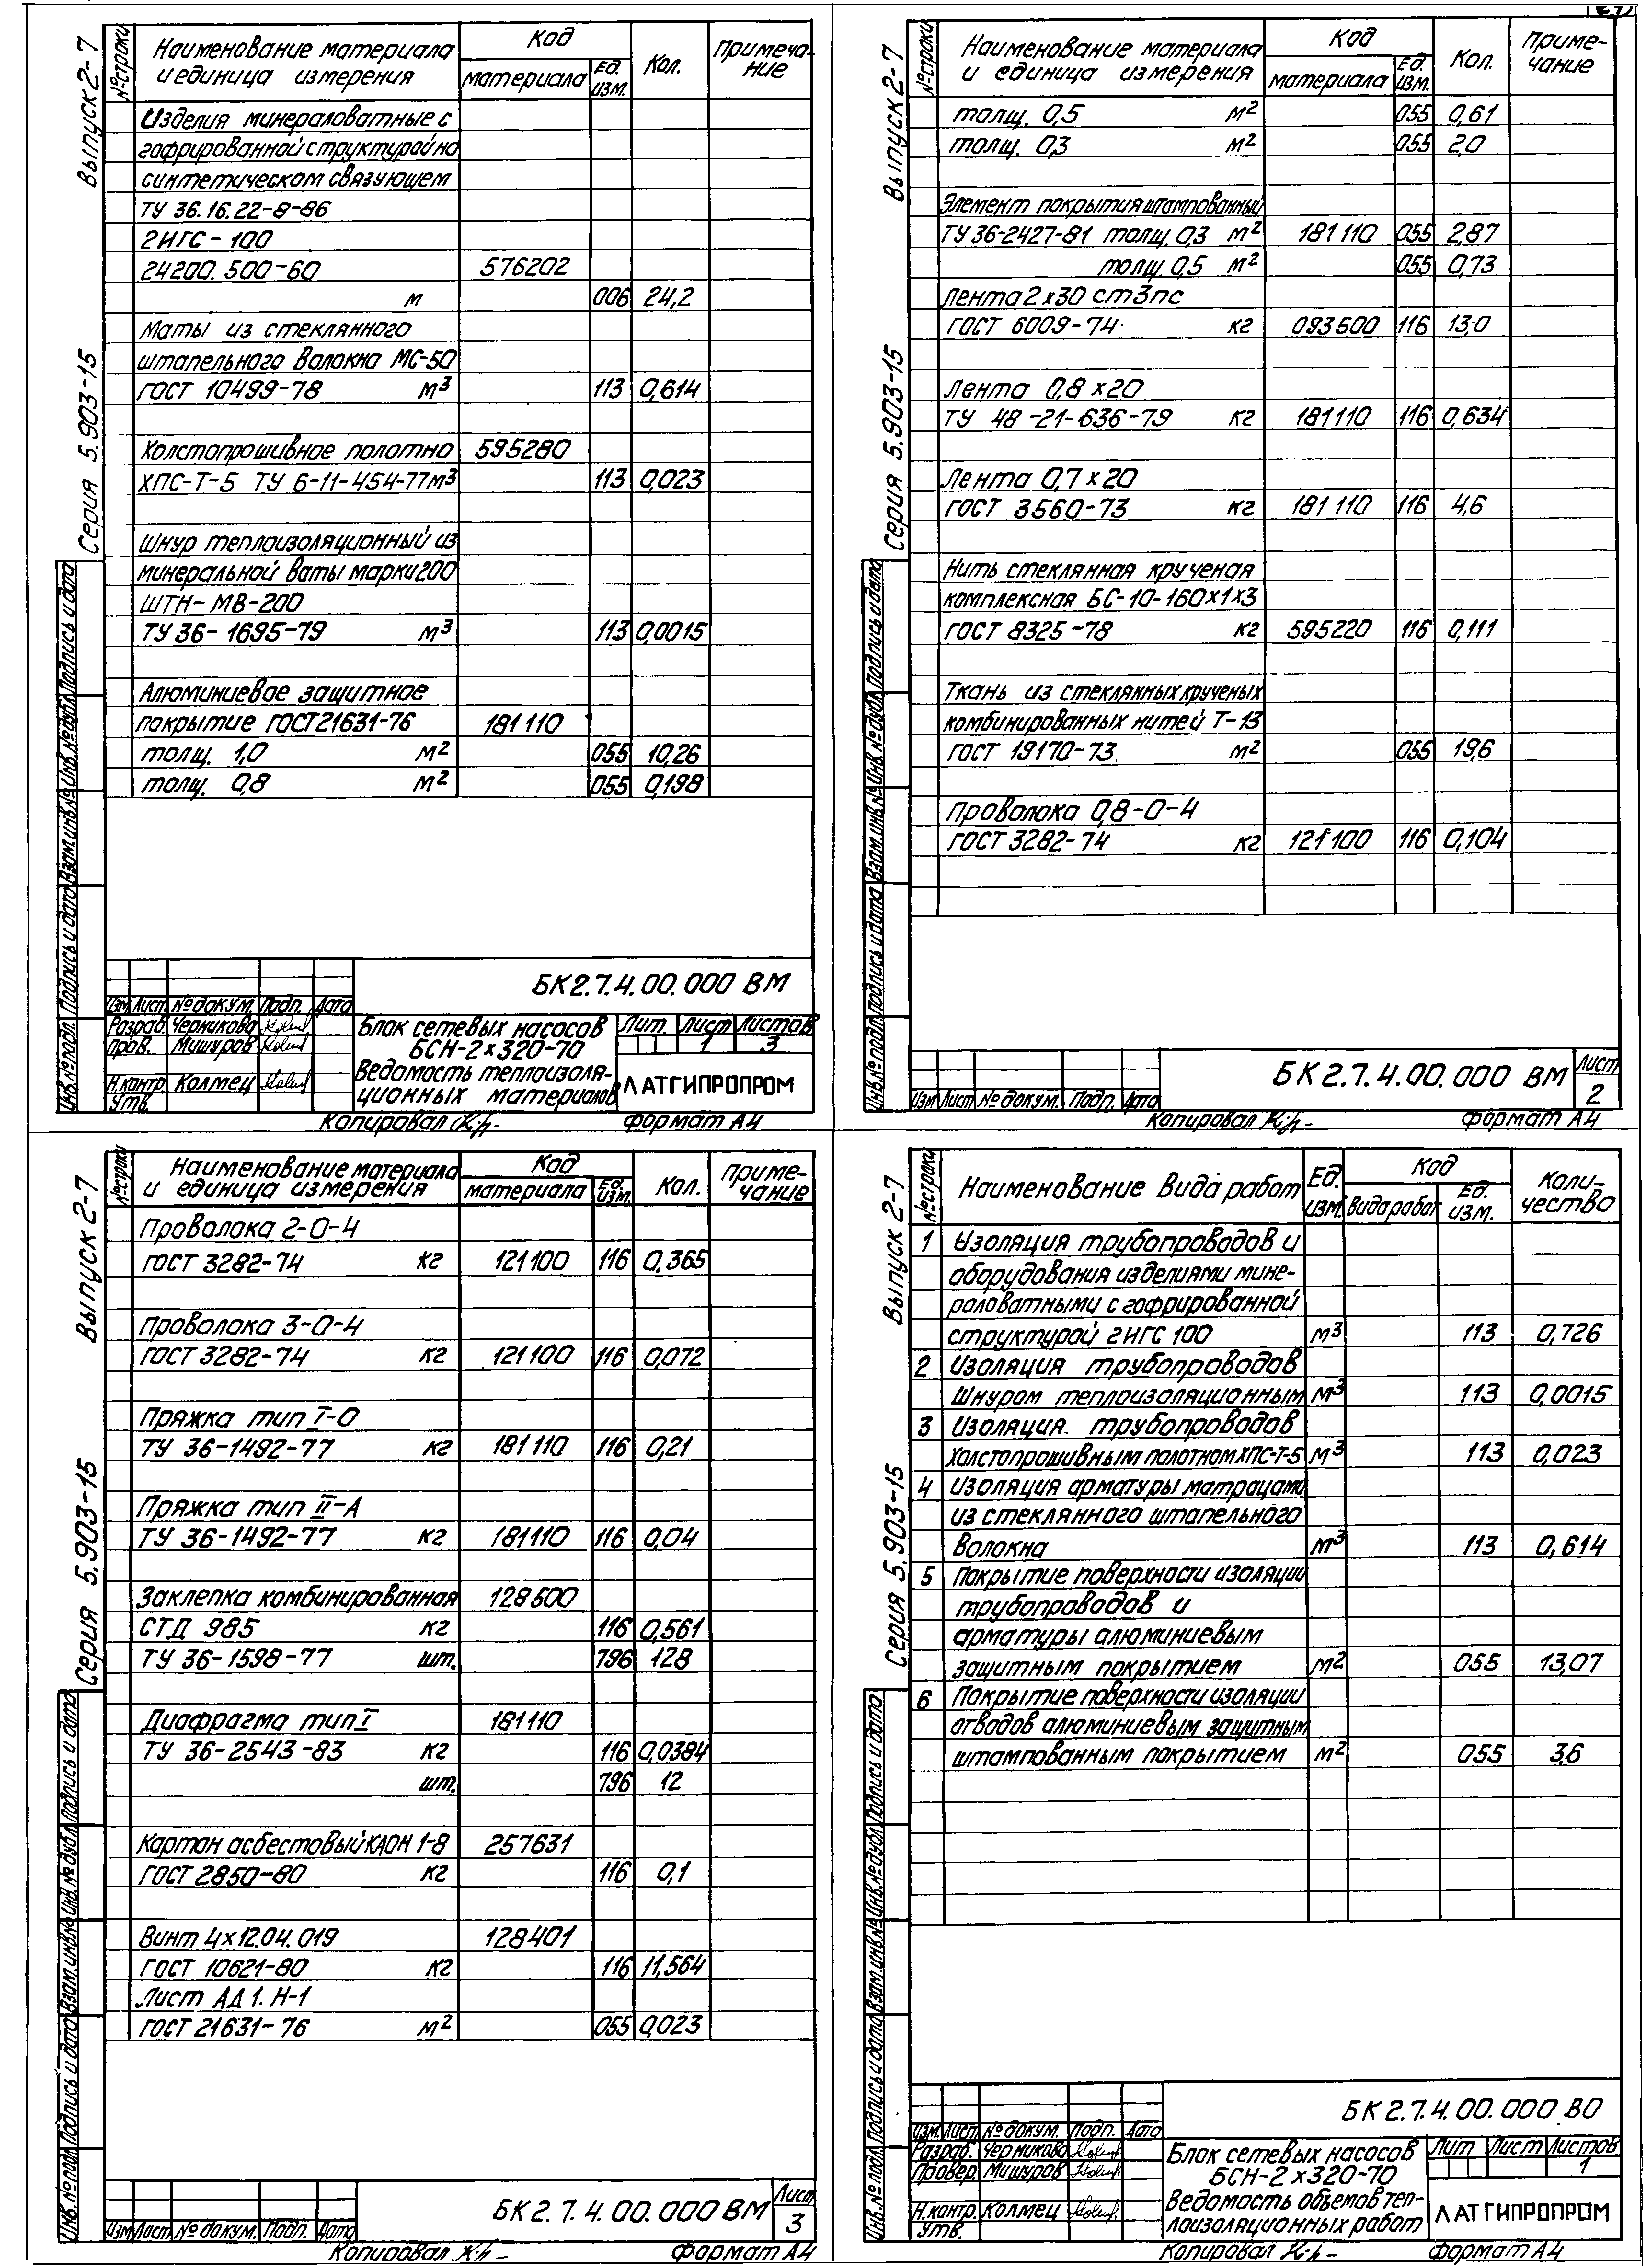 Выпуск 2-7
Серия 5.903-15
№ строки Наименование материала и единица измерения Код материала Ед. изм. Кол. Примечание
Изделия минераловатные с
гофрированной структурой на
синтетическом связующем
ТУ 36.16.22-8-86
2ИГС-100
24200.500-60 576202
м 006 24,2
Маты из стеклянного
штапельного волокна МС-50
ГОСТ 10499-78 м³ 113 0,614
Холстопрошивное полотно 595280
ХПС-Т-5 ТУ 6-11-454-77 м³ 113 0,023
Шнур теплоизоляционный из
минеральной ваты марки 200
ШТН-МВ-200
ТУ 36-1695-79 м³ 113 0,0015
Алюминиевое защитное
покрытие ГОСТ 21631-76 181110
толщ. 1,0 м² 055 10,26
толщ. 0,8 м² 055 0,198
Инв.№ подл. Подпись и дата Взам.инв.№ Инв.№ дубл. Подпись и дата
БК2.7.4.00.000 ВМ
Изм Лист № докум. Подп. Дата
Разраб. Черникова
Пров. Мишуров
Н.контр. Колмец
Утв.
Блок сетевых насосов
БСН-2х320-70
Ведомость теплоизоля-
ционных материалов
Лит. Лист Листов
1 3
ЛАТГИПРОПРОМ
Копировал Формат А4
Выпуск 2-7
Серия 5.903-15
№ строки Наименование материала и единица измерения Код материала Ед. изм. Кол. Приме-чание
толщ. 0,5 м² 055 0,61
толщ. 0,3 м² 055 2,0
Элемент покрытия штампованный
ТУ 36-2427-81 толщ. 0,3 м² 181110 055 2,87
толщ. 0,5 м² 055 0,73
Лента 2х30 ст3пс
ГОСТ 6009-74 кг 093500 116 13,0
Лента 0,8х20
ТУ 48-21-636-79 кг 181110 116 0,634
Лента 0,7х20
ГОСТ 3560-73 кг 181110 116 4,6
Нить стеклянная крученая
комплексная БС-10-160х1х3
ГОСТ 8325-78 кг 595220 116 0,111
Ткань из стеклянных крученых
комбинированных нитей Т-13
ГОСТ 19170-73 м² 055 19,6
Проволока 0,8-0-4
ГОСТ 3282-74 кг 121100 116 0,104
Инв.№ подл. Подпись и дата Взам.инв.№ Инв.№ дубл. Подпись и дата
Изм Лист № докум. Подп. Дата
БК2.7.4.00.000 ВМ
Лист
2
Копировал Формат А4
Выпуск 2-7
Серия 5.903-15
№ строки Наименование материала и единица измерения Код материала Ед. изм. Кол. Приме-чание
Проволока 2-0-4
ГОСТ 3282-74 кг 121100 116 0,365
Проволока 3-0-4
ГОСТ 3282-74 кг 121100 116 0,072
Пряжка тип I-0
ТУ 36-1492-77 кг 181110 116 0,21
Пряжка тип II-А
ТУ 36-1492-77 кг 181110 116 0,04
Заклепка комбинированная 128500
СТД 985 кг 116 0,561
ТУ 36-1598-77 шт. 796 128
Диафрагма тип I 181110
ТУ 36-2543-83 кг 116 0,0384
шт. 796 12
Картон асбестовый КАОН 1-8 257631
ГОСТ 2850-80 кг 116 0,1
Винт 4х12.04.019 128401
ГОСТ 10621-80 кг 116 11,564
Лист АД1.Н-1
ГОСТ 21631-76 м² 055 0,023
Инв.№ подл. Подпись и дата Взам.инв.№ Инв.№ дубл. Подпись и дата
Изм Лист № докум. Подп. Дата
БК2.7.4.00.000 ВМ
Лист
3
Копировал Формат А4
Выпуск 2-7
Серия 5.903-15
№ строки Наименование вида работ Ед. изм. Код вида работ Ед. изм. Коли-чество
1 Изоляция трубопроводов и
оборудования изделиями мине-
раловатными с гофрированной
структурой 2ИГС 100 м³ 113 0,726
2 Изоляция трубопроводов
шнуром теплоизоляционным м³ 113 0,0015
3 Изоляция трубопроводов
холстопрошивным полотном ХПС-Т-5 м³ 113 0,023
4 Изоляция арматуры матрацами
из стеклянного штапельного
волокна м³ 113 0,614
5 Покрытие поверхности изоляции
трубопроводов и
арматуры алюминиевым
защитным покрытием м² 055 13,07
6 Покрытие поверхности изоляции
отводов алюминиевым защитным
штампованным покрытием м² 055 3,6
Инв.№ подл. Подпись и дата Взам.инв.№ Инв.№ дубл. Подпись и дата
БК2.7.4.00.000 ВО
Изм. Лист № докум. Подп. Дата
Разраб. Черникова
Провер. Мишуров
Н.контр. Колмец
Утв.
Блок сетевых насосов
БСН-2х320-70
Ведомость объемов теп-
лоизоляционных работ
Лит Лист Листов
1
ЛАТГИПРОПРОМ
Копировал Формат А4